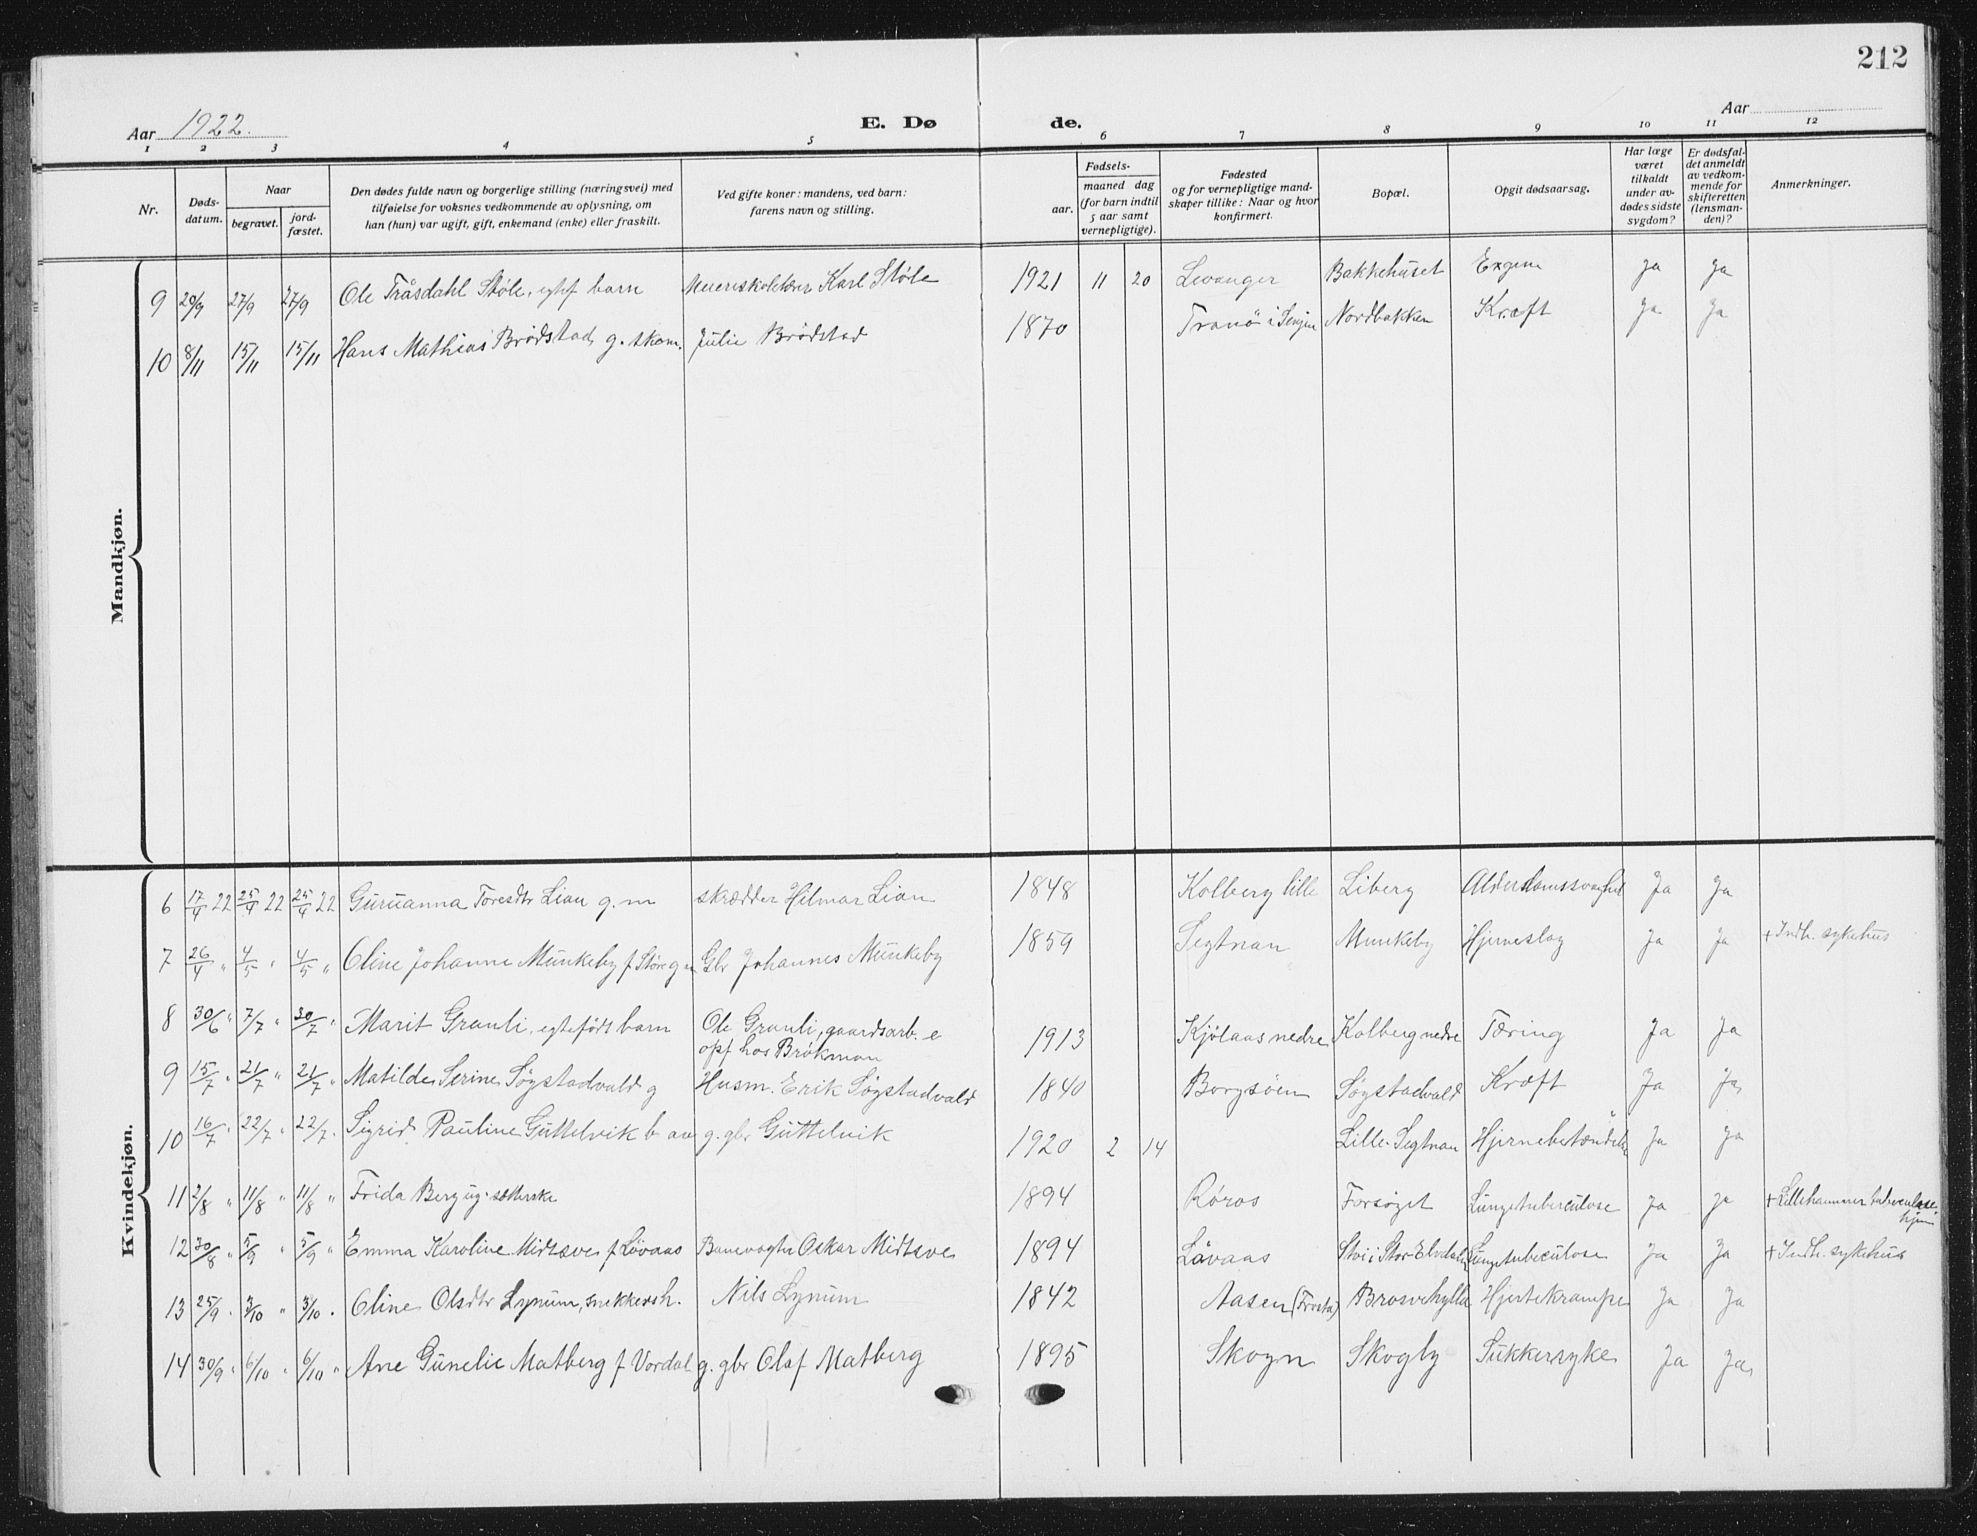 212
Aar 1922.
E. Dø
de.
Aar
1 2 3 4 5 6 7 8 9 10 11 12
Nr.
Døds-
datum.
Naar
begravet.
jord-
fæstet.
Den dødes fulde navn og borgerlige stilling (næringsvei) med
tilføielse for voksnes vedkommende av oplysning, om
han (hun) var ugift, gift, enkemand (enke) eller fraskilt.
Ved gifte koner: mandens, ved barn:
farens navn og stilling.
aar.
Fødsels-
maaned dag
(for barn indtil
5 aar samt
vernepligtige).
Fødested
og for vernepligtige mand-
skaper tillike: Naar og hvor
konfirmert.
Bopæl.
Opgit dødsaarsag.
Har læge
været
tilkaldt
under av-
dødes sidste
sygdom?
Er dødsfal-
det anmeldt
av vedkom-
mende for
skifteretten
(lensman-
den)?
Anmerkninger.
Mandkjøn.
9 20/9 27/9 27/9 Ole Tråsdahl Støle, barn Karl Støle 1921 11 20 Levanger Bakkehuset Exgem Ja Ja
10 8/11 15/11 15/11 Hans Mathias Brødstad, g. skom. Julie Brødstad 1870 Tranö i Senjen Nordbakken Kræft Ja Ja
Kvindekjøn.
6 17/4 22 25/4 22 25/4 22 Guruanna Toresdtr Lian g. m skrædder Hilmar Lian 1848 Kolberg lille Liberg Alderdomssvaghed Ja Ja
7 26/4 " 4/5 " 4/5 " Oline Johanne Munkeby f. Støre g m Gbr Johannes Munkeby 1859 Segtnan Munkeby Hjerneslag Ja Ja + Indh. sykehus
8 30/6 " 7/7 " 30/7 " Marit Granli, egtefödt barn Ole Granli, gaardsarb. e
opf hos Brökman 1913 Kjölaas nedre Kolberg nedre Tæring Ja Ja
9 15/7 " 21/7 " 21/7 " Matilde Serine Søgstadvald g Husm. Erik Søgstadvald 1840 Borgsöen Søgstadvald Kræft Ja Ja
10 16/7 " 22/7 " 22/7 " Sigrid Pauline Guttelvik b av g. gbr Guttelvik 1920 2 14 Lille-Segtnan Hjernebetændelse Ja Ja
11 2/8 " 11/8 " 11/8 " Frida Berg ug. sætterske 1894 Røros Forsøget Lungetuberculose Ja Ja + Lillehammer tuberculose-
hjem
12 30/8 " 5/9 " 5/9 " Emma Karoline Midtsve f Lövaas Banevogter Oskar Midtsve 1894 Lövaas Stai i Stor-Elvdalen Lungetubeculose Ja Ja + Indh. sykehus
13 25/9 " 3/10 " 3/10 " Oline Olsdtr Lynum, snekkersh. Nils Lynum 1842 Aasen (Frosta) Brosvehylla Hjertekrampe Ja Ja
14 30/9 " 6/10 " 6/10 " Ane Gunelie Matberg f Vordal g. gbr Olaf Matberg 1895 Skogn Skogly Sukkersyke Ja Ja